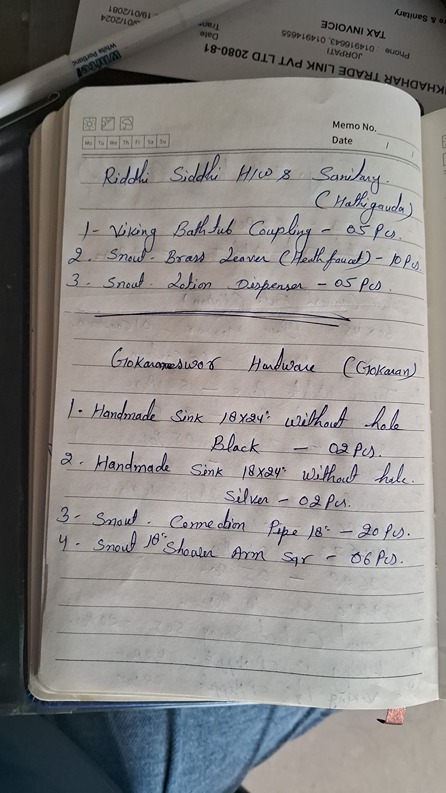 re & Sanitary
KHADHAR TRADE LINK PVT LTD 2080-81
JORPATI
Phone : 01-4916643, 014914655
TAX INVOICE
Date
19/01/2081
/01/2024
White
Memo No.
Mo Tu We Th Fr Sa Su
Date / /
Riddhi Siddhi H/W & Sanitary.
(Hathigauda)
1- Viking Bathtub Coupling - 05 Pcs.
2. Snout- Brass Leaver (Heathfaucet) - 10 Pcs.
3. Snout- Lotion Dispenser - 05 Pcs.
Gokarneswor Hardware (Gokaran)
1- Handmade Sink 18x24" without hole
Black - 02 Pcs.
2. Handmade Sink 18x24" without hole.
Silver - 02 Pcs.
3- Snout. Connection Pipe 18" - 20 Pcs.
4- Snout 18" Shower Arm Sqr - 06 Pcs.